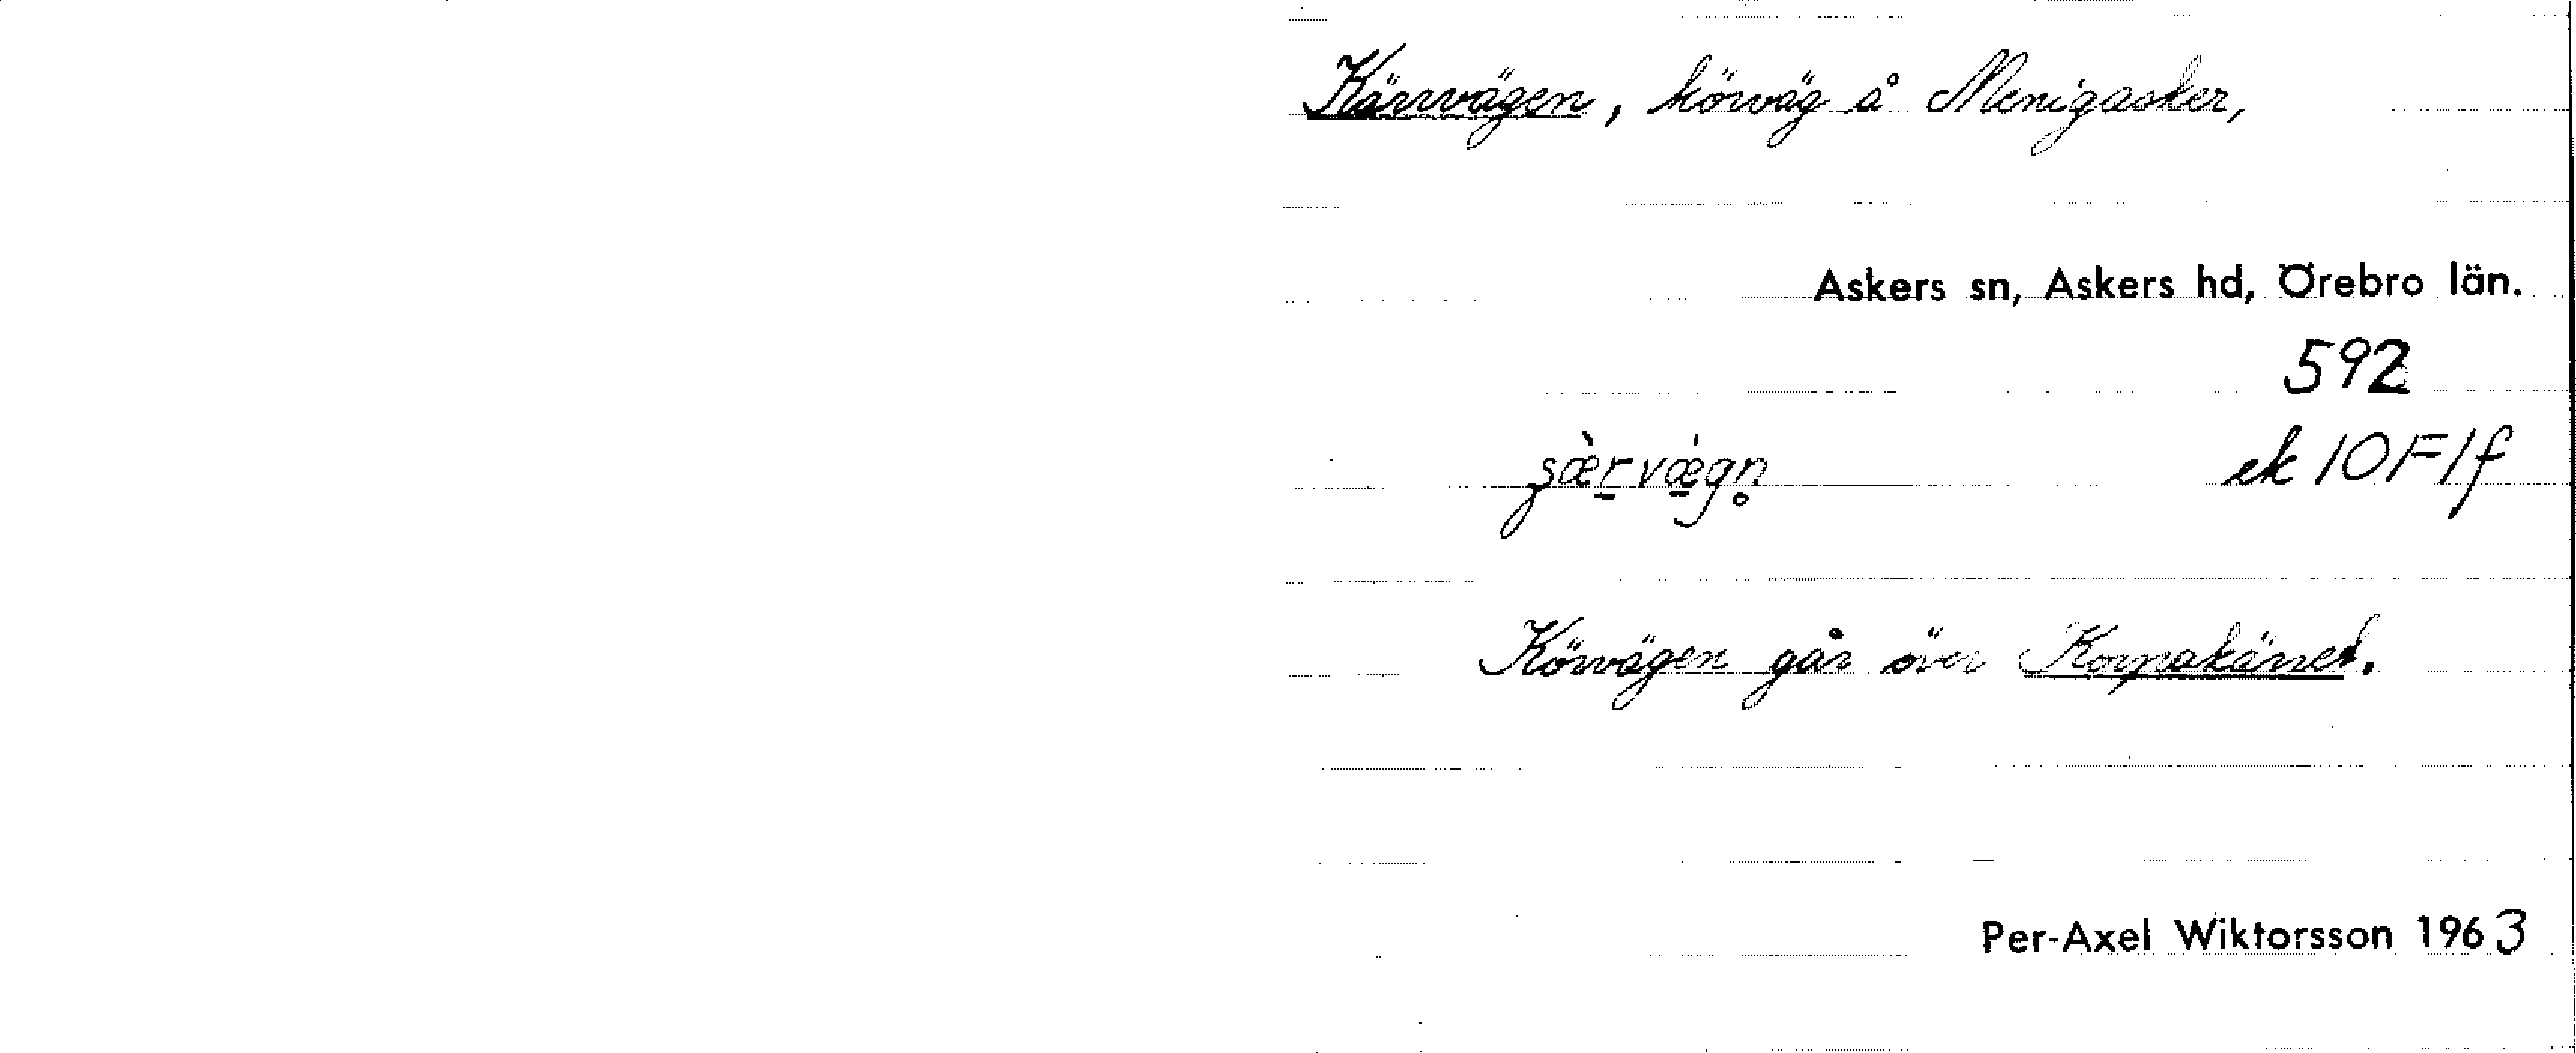 Kärrvägen, körväg å Menigasker,
Askers sn, Askers hd, Örebro län.
592
ek 10F1f
Körvägen går över Korpakärret.
Per-Axel Wiktorsson 1963